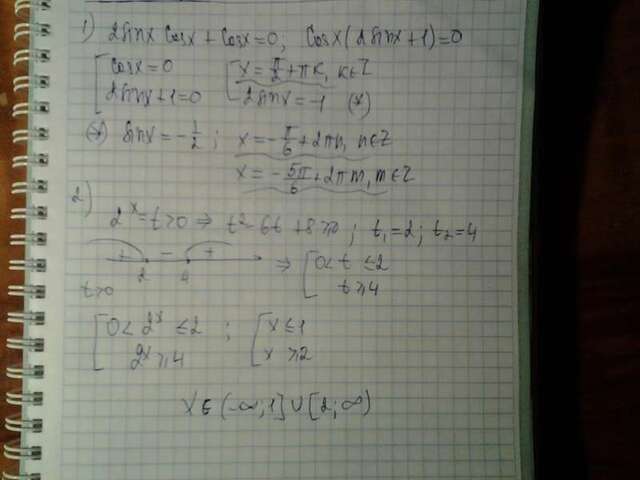 1) 2sinx cosx + cosx = 0; cosx(2sinx+1)=0
[cosx=0 [x=π/2+πk, k∈Z
2sinx+1=0 2sinx=-1 (*)
(*) sinx=-1/2; x=-π/6+2πn, n∈Z
x=-5π/6+2πm, m∈Z
2)
2^x=t>0 ⇒ t²-6t+8≥0; t₁=2; t₂=4
+ - +
2 4 ⇒ [0<t≤2
t>0 t≥4
[0<2^x≤2; [x≤1
2^x≥4 x≥2
x∈(-∞;1]∪[2;∞)